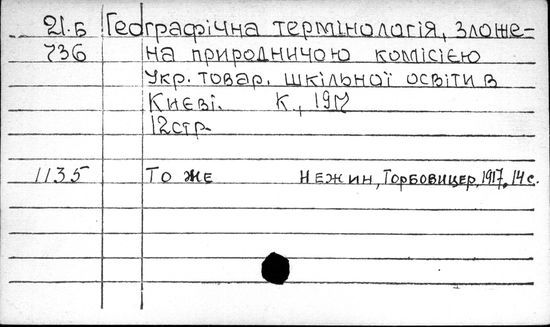 21.Б Географічна термінологія, зложе-
736 на природничою комісією
Укр. товар. шкільної освіти в
Києві. К., 1917
12стр.
1135 То же Нежин, Торбовицер, 1917, 14 с.